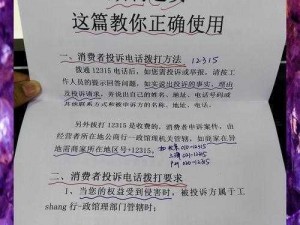 这篇教你正确使用
一、消费者投诉电话拨打方法 12315
拨通 12315 电话后，如您需投诉或举报，请按工
作人员的提示回答问题，如实说出投诉的事实、理由
及投诉请求，并说出自己的姓名、地址、电话或其他
联系方式和被申诉方的名称、地址、电话。
另外拨打 12315 是收费的，消费者申诉案件，由
经营者所在地公商行一政馆理机关管辖，如商家在异
地需商家所在地区号+12315
二、消费者投诉电话拨打要求
1、当您的权益受到侵害时，被投诉方属于工
shang 行一政馆理部门管辖时：